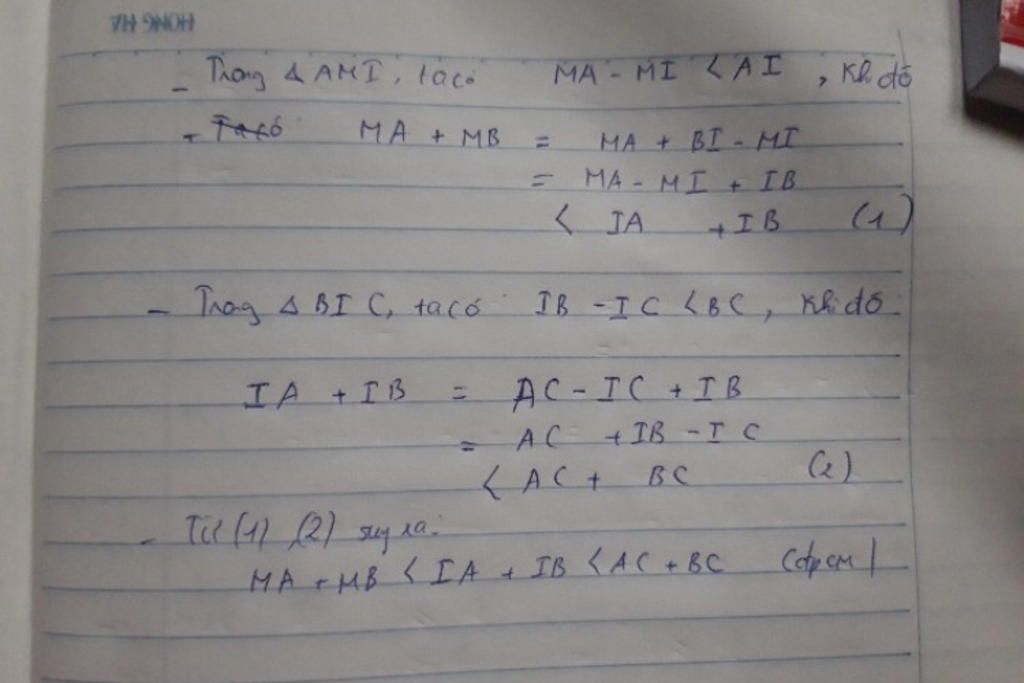 HONG HA
- Trong Δ AMI, ta có MA - MI < AI, khi đó
- Ta có MA + MB = MA + BI - MI
= MA - MI + IB
< IA + IB (1)
- Trong Δ BIC, ta có IB - IC < BC, khi đó:
IA + IB = AC - IC + IB
= AC + IB - IC
< AC + BC (2)
- Từ (1), (2) suy ra:
MA + MB < IA + IB < AC + BC (đpcm)